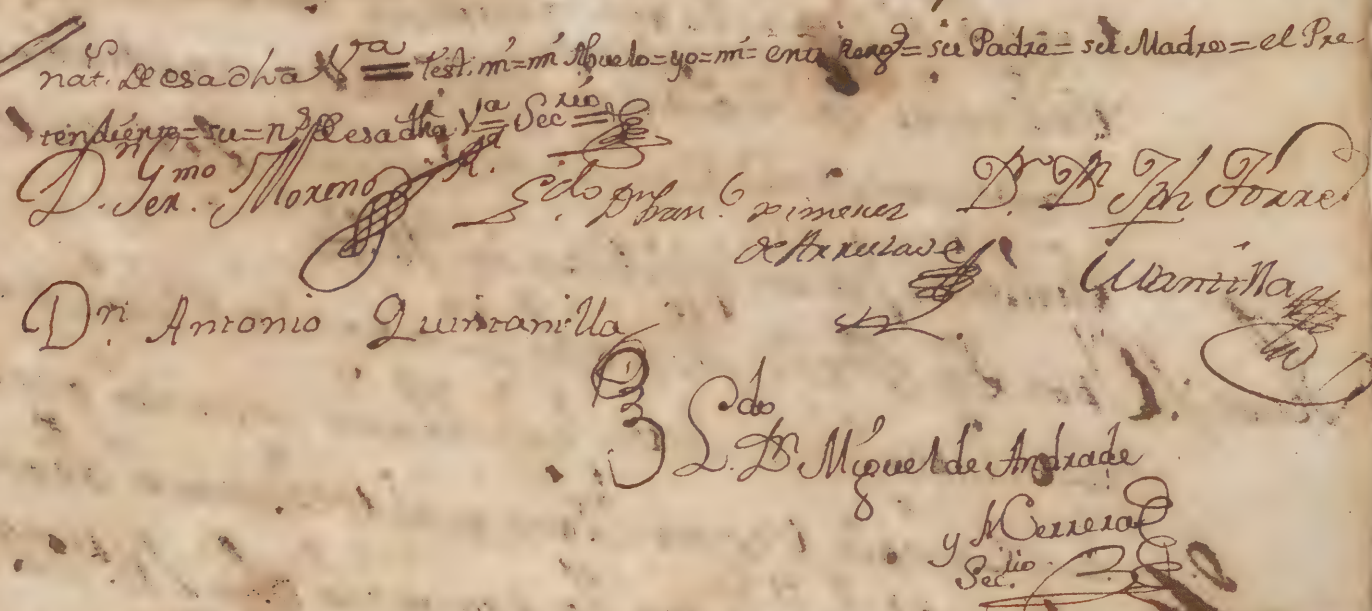 nat.s de esa dha V.a = test. mi = mi Abuelo = yo = mi = entre reng.s = su Padre = su Madre = el Pre
tendiente = su = n.s de esa dha V.a = Sec.rio
D.n Ger.mo Moreno
L.do D.n Fran.co Ximenez
de Arrelave
D.r D.n Jph Torre
Mantilla
D.n Antonio Quintanilla
L.do D.n Miguel de Andrade
y Herrera
Sec.rio